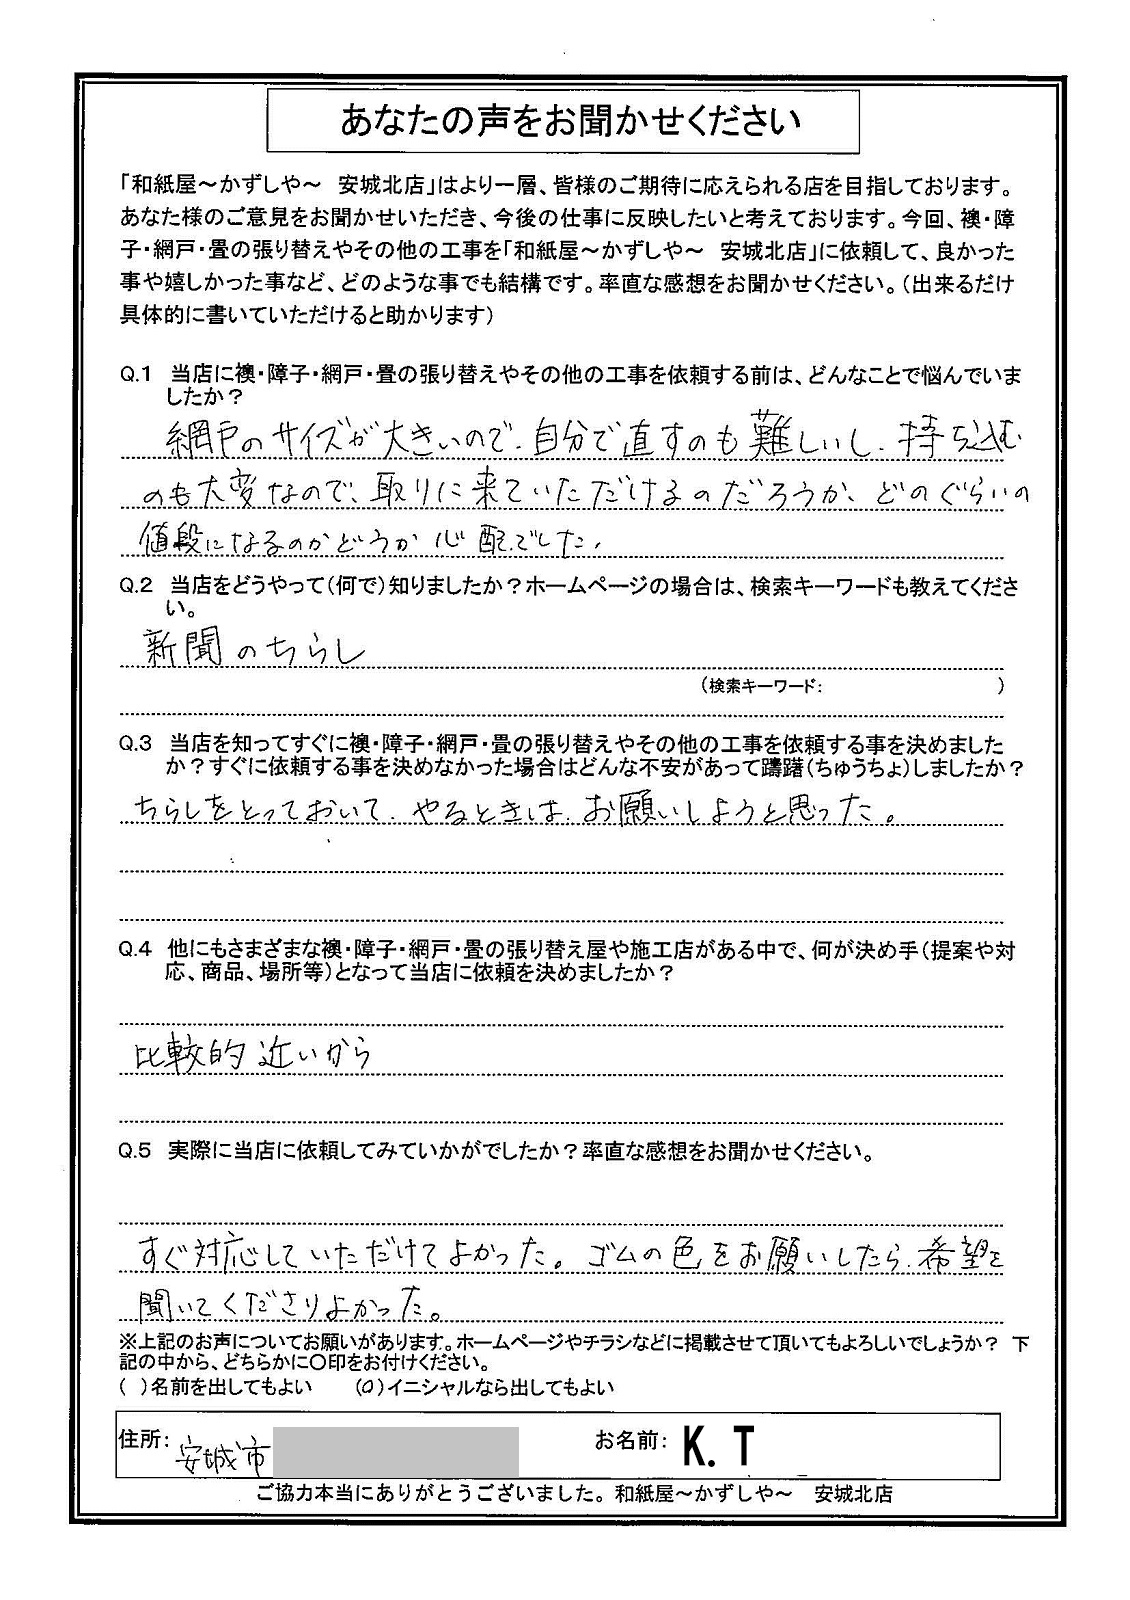 あなたの声をお聞かせください
「和紙屋～かずしや～　安城北店」はより一層、皆様のご期待に応えられる店を目指しております。
あなた様のご意見をお聞かせいただき、今後の仕事に反映したいと考えております。今回、襖・障
子・網戸・畳の張り替えやその他の工事を「和紙屋～かずしや～　安城北店」に依頼して、良かった
事や嬉しかった事など、どのような事でも結構です。率直な感想をお聞かせください。（出来るだけ
具体的に書いていただけると助かります）
Q.1　当店に襖・障子・網戸・畳の張り替えやその他の工事を依頼する前は、どんなことで悩んでいま
したか？
網戸のサイズが大きいので、自分で直すのも難しいし、持ち込む
のも大変なので、取りに来ていただけるのだろうか、どのぐらいの
値段になるのかどうか心配でした。
Q.2　当店をどうやって（何で）知りましたか？ホームページの場合は、検索キーワードも教えてくださ
い。
新聞のちらし
（検索キーワード：　　　　　　　　　）
Q.3　当店を知ってすぐに襖・障子・網戸・畳の張り替えやその他の工事を依頼する事を決めました
か？すぐに依頼する事を決めなかった場合はどんな不安があって躊躇（ちゅうちょ）しましたか？
ちらしをとっておいて、やるときは、お願いしようと思った。
Q.4　他にもさまざまな襖・障子・網戸・畳の張り替え屋や施工店がある中で、何が決め手（提案や対
応、商品、場所等）となって当店に依頼を決めましたか？
比較的近いから
Q.5　実際に当店に依頼してみていかがでしたか？率直な感想をお聞かせください。
すぐ対応していただけてよかった。ゴムの色をお願いしたら、希望を
聞いてくださりよかった。
※上記のお声についてお願いがあります。ホームページやチラシなどに掲載させて頂いてもよろしいでしょうか？　下
記の中から、どちらかに〇印をお付けください。
（　）名前を出してもよい　　（〇）イニシャルなら出してもよい
住所：安城市　　お名前：K. T
ご協力本当にありがとうございました。和紙屋～かずしや～　安城北店